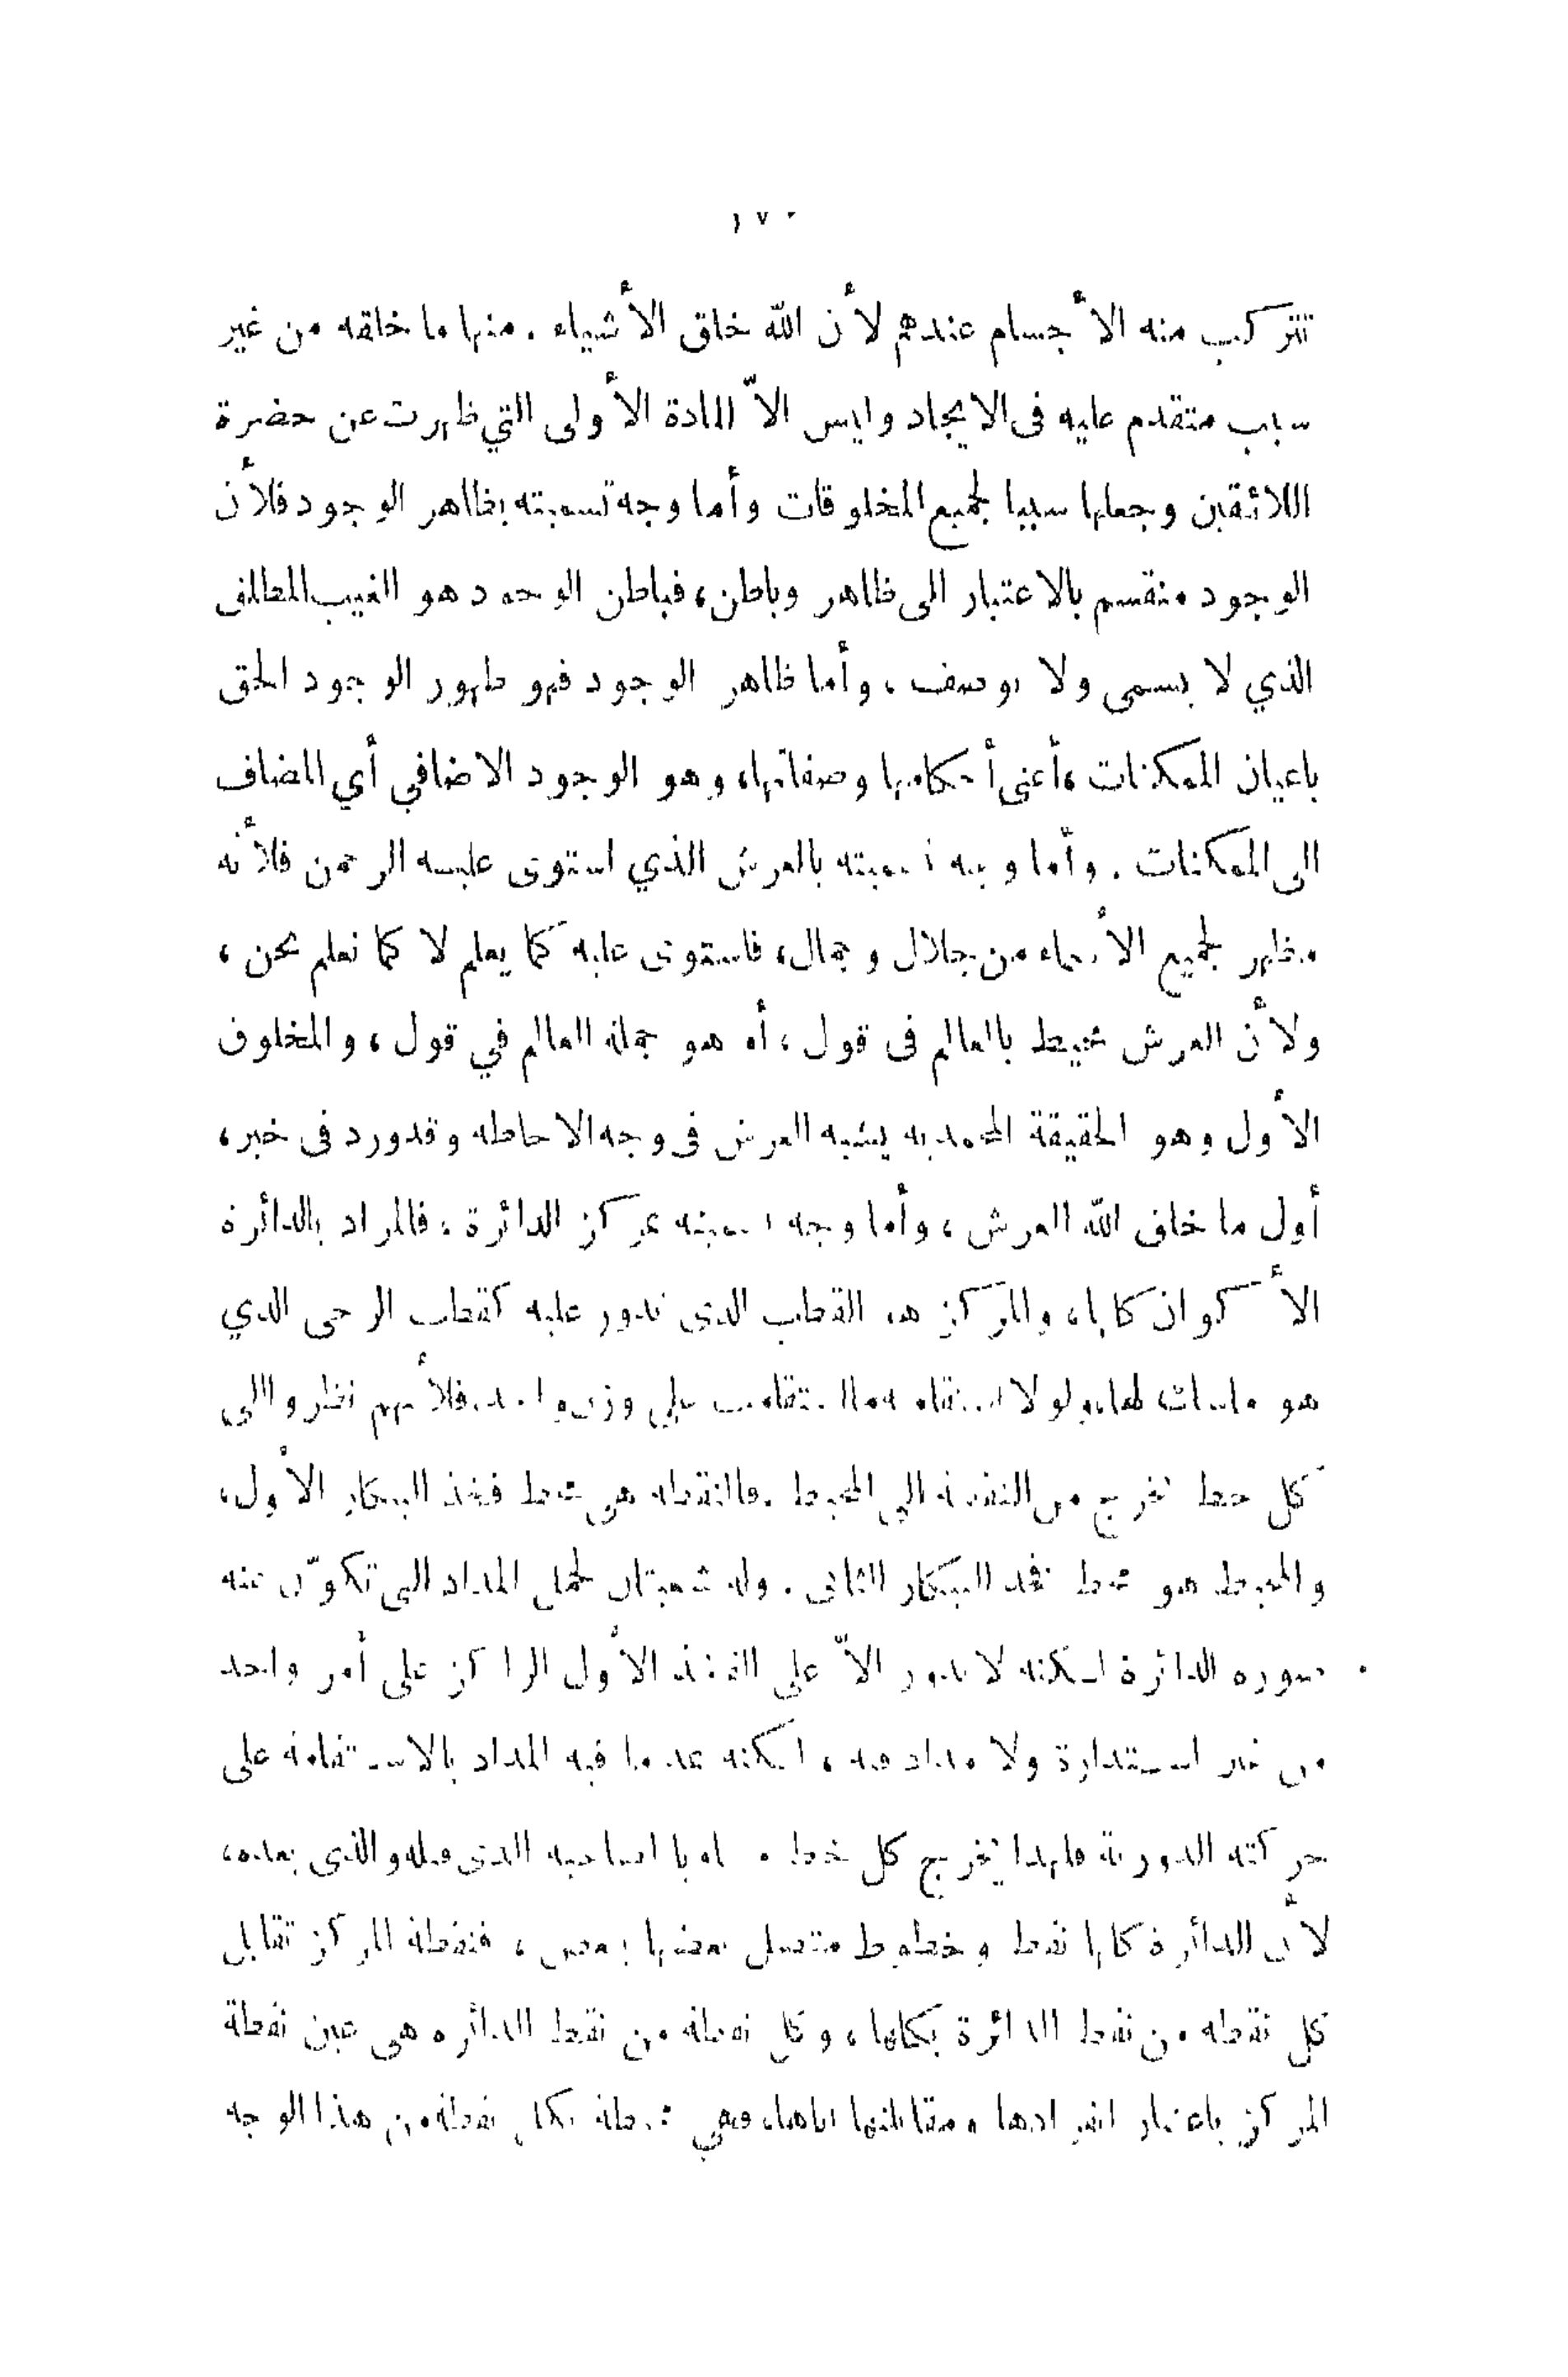 ١٧٠
تتركب منه الأجسام عندهم لأن الله خلق الأشياء . منها ما خلقه من غير
سبب متقدم عليه فى الايجاد وليس الاّ المادة الأولى التي ظهرت عن حضرة
اللائقين وجعلها سببا لجميع المخلوقات وأما وجه تسميته بظاهر الوجود فلأن
الوجود منقسم بالاعتبار الى ظاهر وباطن، فباطن الوجود هو الغيب المطلق
الذي لا يسمى ولا يوصف ، وأما ظاهر الوجود فهو ظهور الوجود الحق
باعيان الممكنات ،أعنى أحكامها وصفاتها، وهو الوجود الاضافي أي المضاف
الى الممكنات . وأما وجه تسميته بالعرش الذي استوى عليه الرحمن فلأنه
مظهر لجميع الأسماء من جلال وجمال، فاستوى عليه كما يعلم لا كما نعلم نحن ،
ولأن العرش محيط بالعالم فى قول ، أو هو جملة العالم في قول ، والمخلوق
الأول وهو الحقيقة المحمدية يشبه العرش فى وجه الاحاطة وقد ورد فى خبر،
أول ما خلق الله العرش ، وأما وجه تسميته بمركز الدائرة ، فالمراد بالدائرة
الأكوان كلها، والمركز هو القطب الذى تدور عليه كقطب الرحى الذي
هو ماسك لها، ولولا استقامته ما استقامت على وزن واحد، فلأنهم نظروا الى
كل خط يخرج من النقطة الى المحيط . فالنقطة هى محط فخذ البيكار الأول،
والمحيط هو محط فخذ البيكار الثانى . وله شعبتان لحمل المداد التى تكوّن عنه
صورة الدائرة لكنه لا يدور الاّ على الفخذ الأول الراكز على أمر واحد
من غير استدارة ولا مداد فيه ، لكنه يمد ما فيه المداد بالاستقامة على
حركته الدورية فلهذا يخرج كل خط مساويا لصاحبه الذى قبله والذى بعده،
لأن الدائرة كلها نقط وخطوط متصل بعضها ببعض ، فنقطة المركز تقابل
كل نقطة من نقط الدائرة بكلها ، وكل نقطة من نقط الدائرة هى عين نقطة
المركز باعتبار انفرادها ومقابلتها اياها، فهي بكل نقطة من هذا الوجه